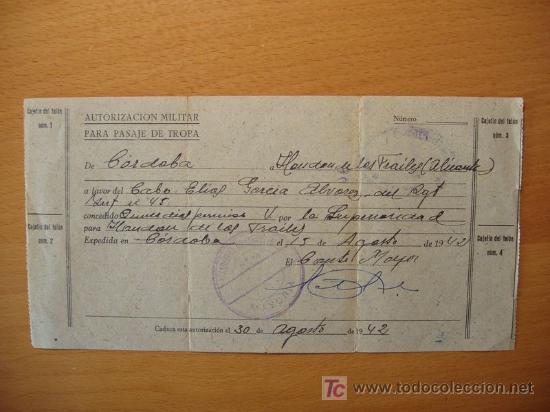 Cajetín del talón
núm. 1
AUTORIZACION MILITAR
PARA PASAJE DE TROPA
Número
Cajetín del talón
núm. 3
De Córdoba a Hondon de los Frailes (Alicante)
a favor del Cabo Elias Garcia Alvarez del Rgt
Inf n 45
concedido Quince dias permiso V por la Superioridad
para Hondon de los Frailes
Cajetín del talón
núm. 2
Cajetín del talón
núm. 4
Expedida en Córdoba el 15 de Agosto de 1942
El Mayor
MAYOR
Caduca esta autorización el 30 de agosto de 1942
TC todocoleccion
www.todocoleccion.net